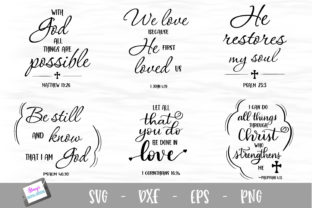 WITH
God
ALL
THINGS ARE
possible
MATTHEW 19:26
We love
BECAUSE
He FIRST
loved US
1 JOHN 4:19
He
restores
my soul
PSALM 23:3
Be still
AND know
THAT I AM God
PSALM 46:10
LET ALL
that you do
BE DONE IN
love
1 CORINTHIANS 16:14
I CAN DO
all things
THROUGH
Christ
WHO
strengthens
ME
SVG - DXF - EPS - PNG